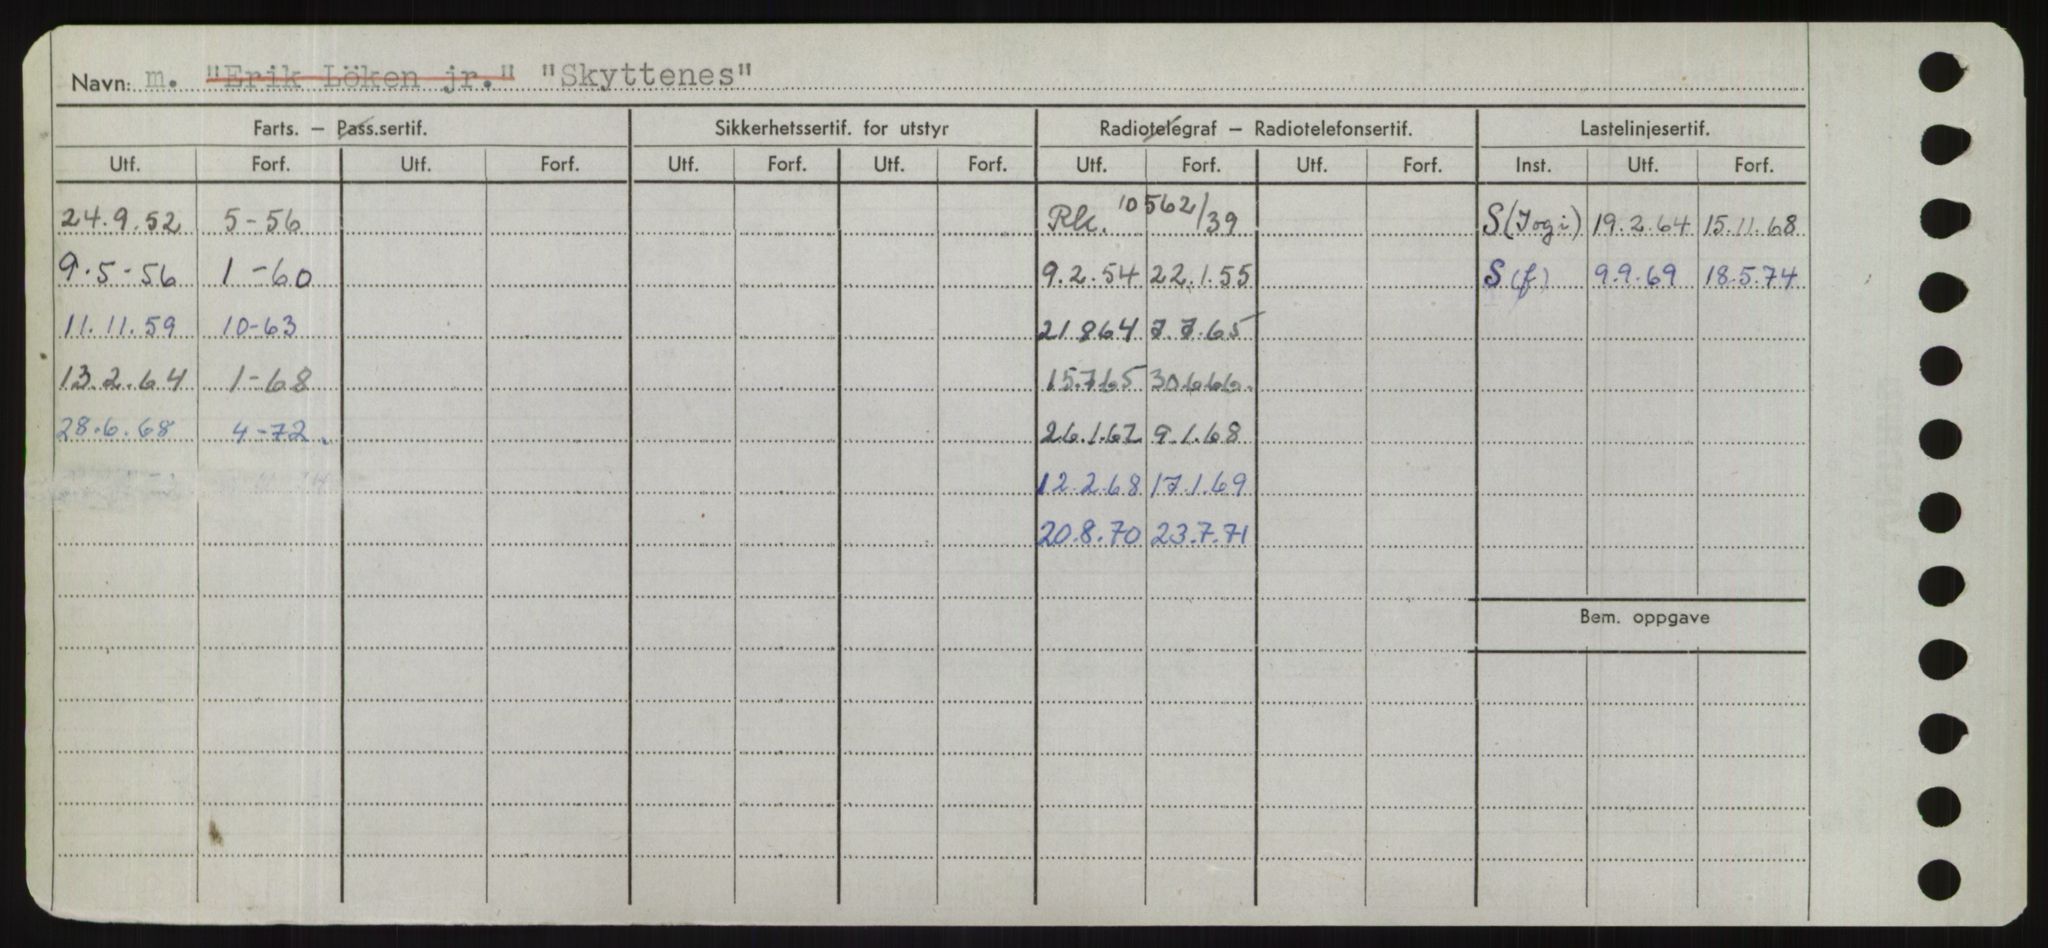 Navn: m. "Erik Löken jr." "Skyttenes"
Farts. – Pass.sertif. Sikkerhetssertif. for utstyr Radiotelegraf – Radiotelefonsertif. Lastelinjesertif.
Utf. Forf. Utf. Forf. Utf. Forf. Utf. Forf. Utf. Forf. Utf. Forf. Inst. Utf. Forf.
24.9.52 5-56 Rk. 10562/39 S(Jogi) 19.2.64 15.11.68
9.5-56 1-60 9.2.54 22.1.55 S(f) 9.9.69 18.5.74
11.11.59 10-63 21864 7.7.65
13.2.64 1-68 15.765 30.6.66.
28.6.68 4-72. 26.1.67 9.1.68
12.2.68 17.1.69
20.8.70 23.7.71
Bem. oppgave